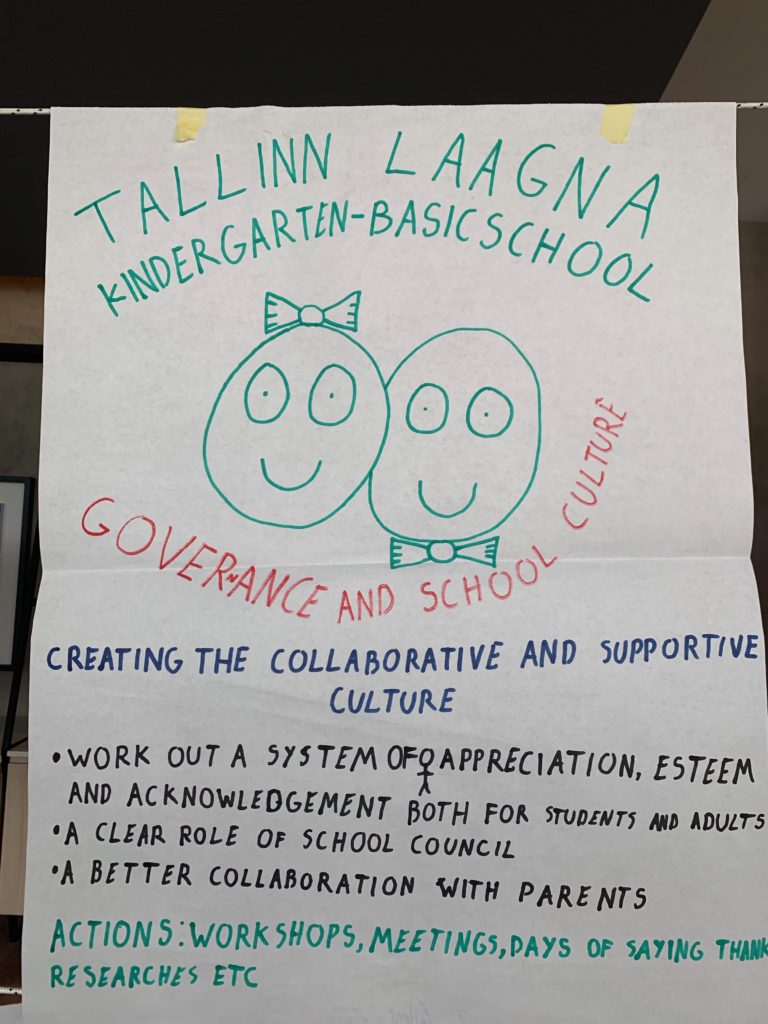 TALLINN LAAGNA
KINDERGARTEN-BASICSCHOOL
GOVERNANCE AND SCHOOL CULTURE
CREATING THE COLLABORATIVE AND SUPPORTIVE
CULTURE
•WORK OUT A SYSTEM OF APPRECIATION, ESTEEM
AND ACKNOWLEDGEMENT BOTH FOR STUDENTS AND ADULTS
•A CLEAR ROLE OF SCHOOL COUNCIL
•A BETTER COLLABORATION WITH PARENTS
ACTIONS: WORKSHOPS, MEETINGS, DAYS OF SAYING THANK
RESEARCHES ETC